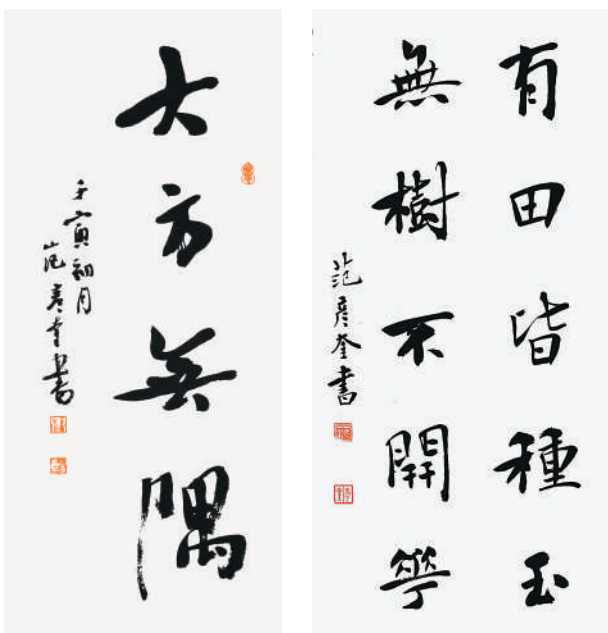 大方無隅
壬寅初月
范彦奎書
有田皆種玉
無樹不開華
范彦奎書